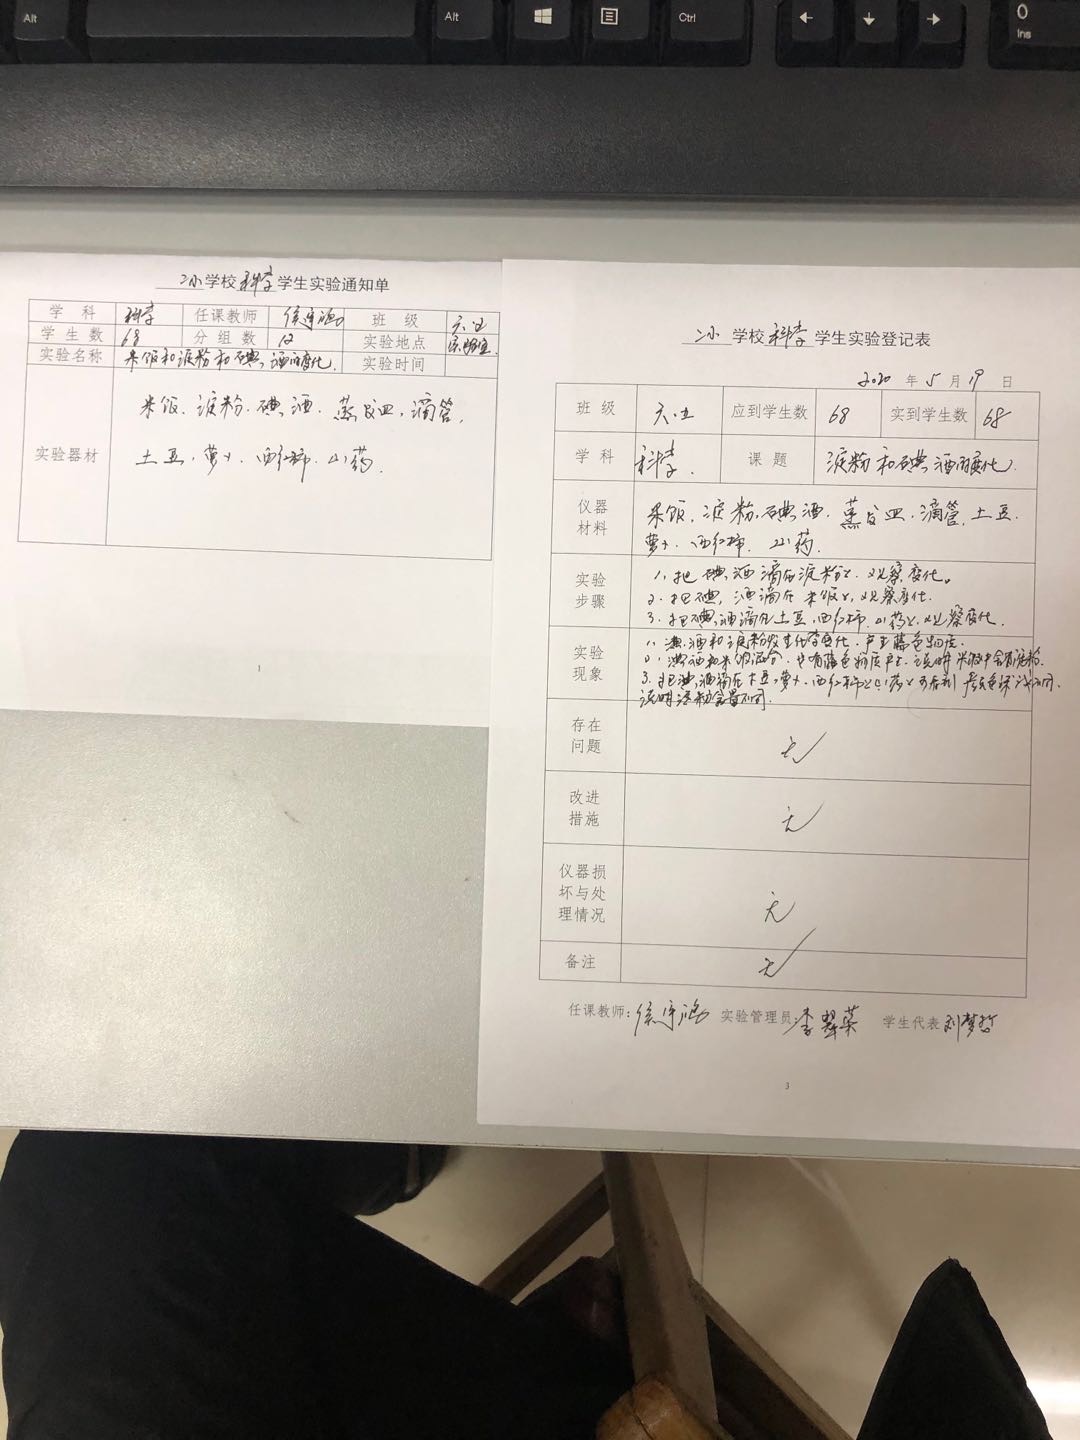 Alt
Alt
Ctrl
0
Ins
二小学校科学学生实验通知单
学科 科学 任课教师 班级 六.五
学生数 68 分组数 12 实验地点 实验室
实验名称 米饭和淀粉和碘酒的变化 实验时间
实验器材
米饭、淀粉、碘酒、蒸发皿、滴管、
土豆、萝卜、西红柿、山药.
1
二小 学校科学学生实验登记表
2020 年 5 月 19 日
班级 六.五 应到学生数 68 实到学生数 68
学科 科学. 课题 淀粉和碘酒的变化.
仪器材料
米饭、淀粉、碘酒、蒸发皿、滴管、土豆.
萝卜、西红柿、山药.
实验步骤
1、把碘酒滴在淀粉上、观察变化。
2、把碘酒滴在米饭上,观察变化.
3、把碘酒滴在土豆,西红柿、山药上、观察变化
实验现象
1、碘酒和淀粉发生化学变化,产生蓝色物质.
2、碘酒和米饭混合、也有蓝色物质产生、说明米饭中含有淀粉.
3、把碘酒滴在土豆,萝卜、西红柿上山药上可看到颜色深浅不同.
说明淀粉含量不同.
存在问题 无
改进措施 无
仪器损坏与处理情况 无
备注 无
任课教师: 实验管理员:李翠英 学生代表 刘梦哲
3